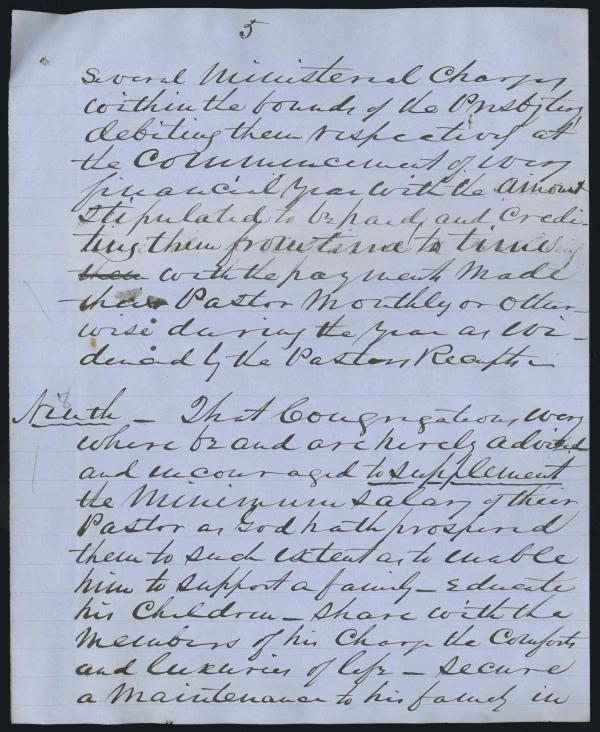 5
several Ministerial Charges
within the bounds of the Presbytery
debiting them respectively at
the Commencement of every
financial Year with the amount
stipulated to be paid, and credi-
ting them from time to time
then with the payments made
their Pastor Monthly or other-
wise during the Year as evi-
denced by the Pastors Receipts
8
Ninth - That Congregations every
where be and are hereby advised
and encouraged to supplement
the Minimum salary of their
Pastor as God hath prospered
them to such extent as to enable
him to support a family - Educate
his Children - share with the
Members of his Charge the Comforts
and luxuries of life - secure
a Maintenance to his family in